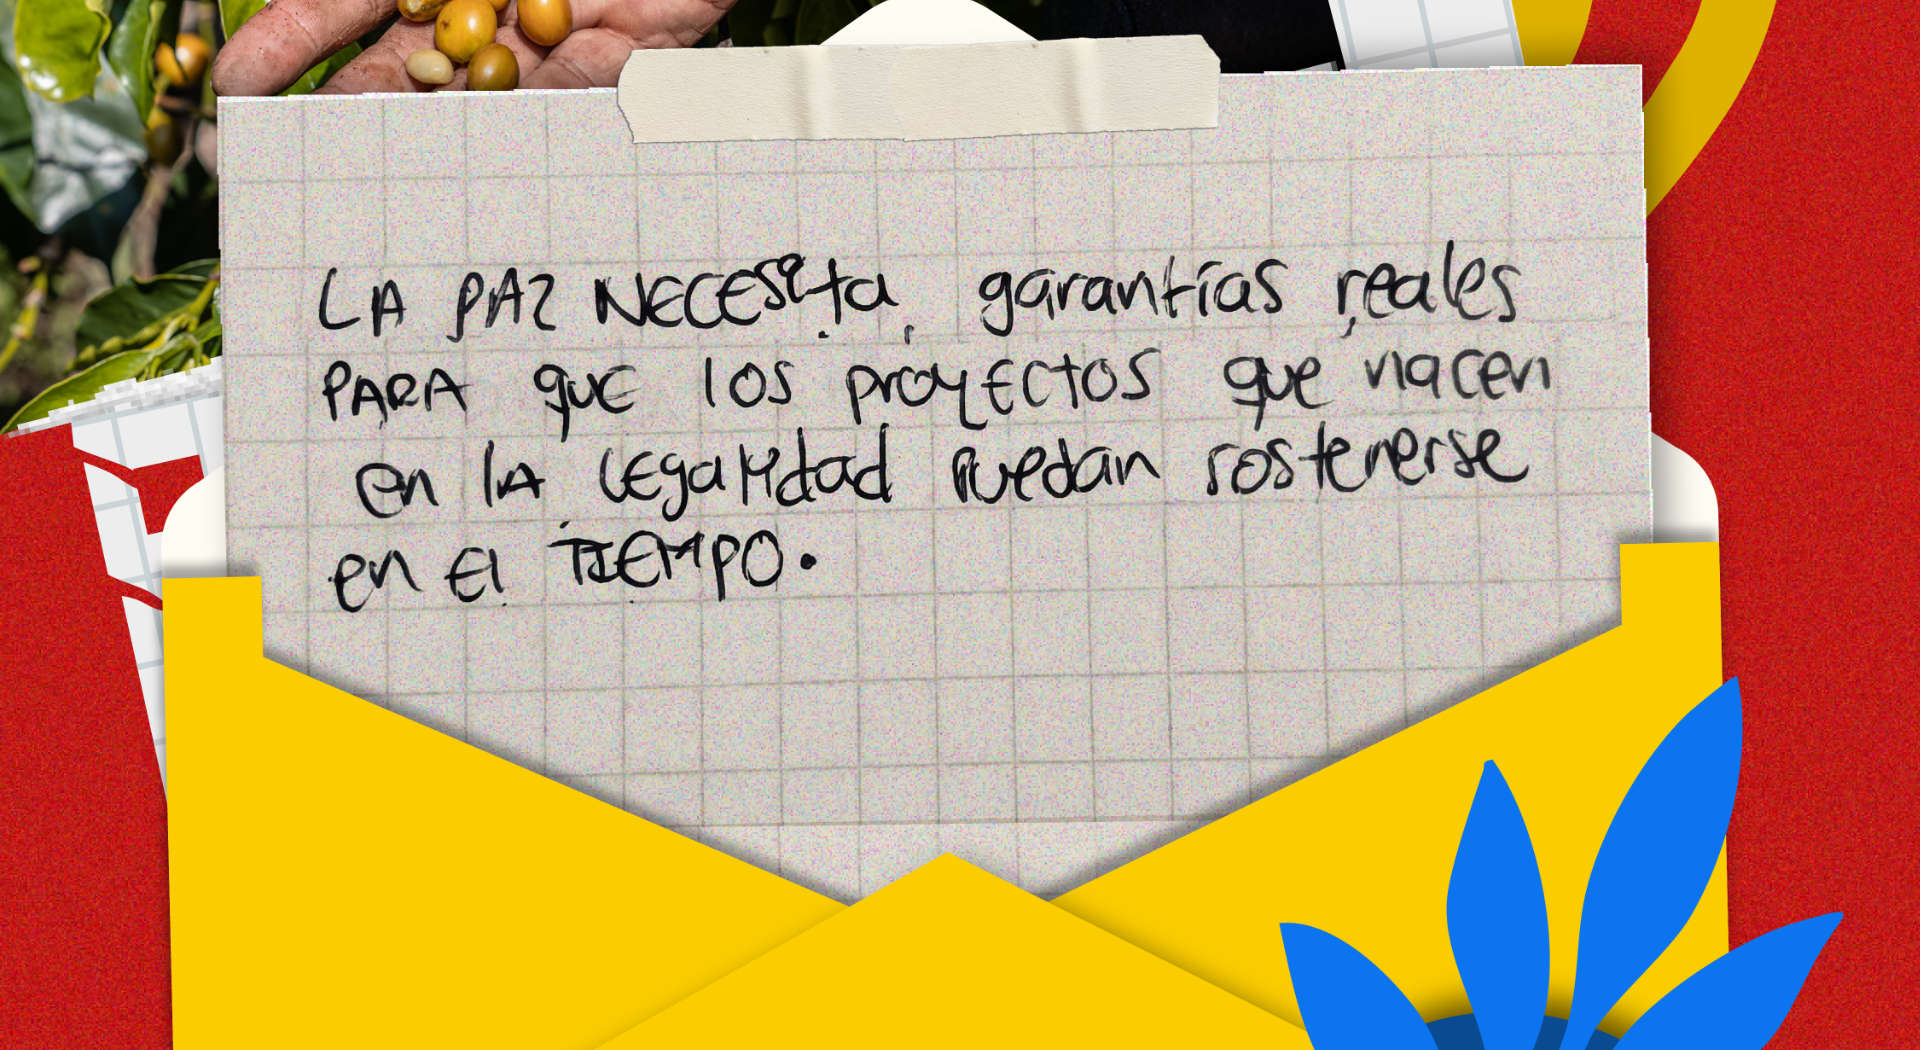 LA PAZ NECESita garantías reales
PARA que los proyectos que nacen
en la legalidad puedan sostenerse
en el TIEMPO.